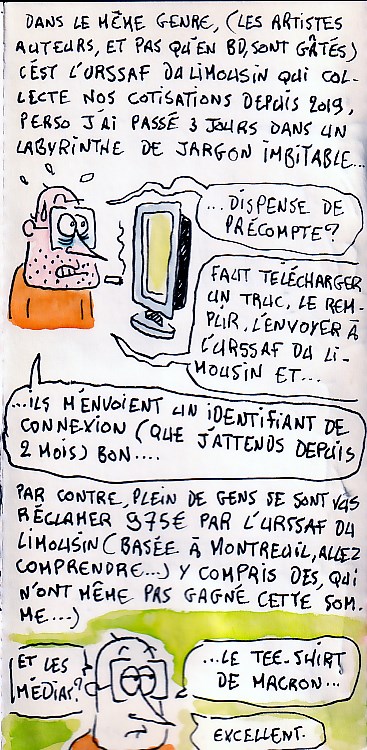 DANS LE MÊME GENRE, (LES ARTISTES
AUTEURS, ET PAS QU'EN BD, SONT GÂTÉS)
C'EST L'URSSAF DU LIMOUSIN QUI COL-
LECTE NOS COTISATIONS DEPUIS 2019,
PERSO J'AI PASSÉ 3 JOURS DANS UN
LABYRINTHE DE JARGON IMBITABLE...
...DISPENSE DE
PRÉCOMPTE?
FAUT TELÉCHARGER
UN TRUC, LE REM-
PLIR, L'ENVOYER À
L'URSSAF DU LI-
MOUSIN ET...
...ILS M'ENVOIENT UN IDENTIFIANT DE
CONNEXION (QUE J'ATTENDS DEPUIS
2 MOIS) BON....
PAR CONTRE, PLEIN DE GENS SE SONT VUS
RÉCLAMER 975€ PAR L'URSSAF DU
LIMOUSIN (BASÉE À MONTREUIL, ALLEZ
COMPRENDRE...) Y COMPRIS DES, QUI
N'ONT MÊME PAS GAGNÉ CETTE SOM-
ME...)
ET LES
MÉDIAS?
...LE TEE-SHIRT
DE MACRON...
EXCELLENT.